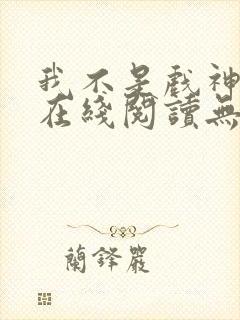 我不是戲神
在綫閱讀無
蘭鋒嚴